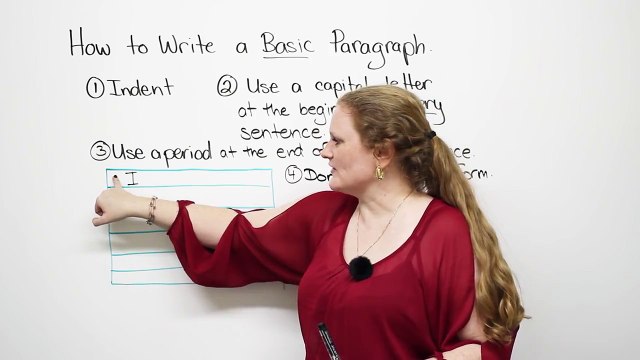 How to Write a Basic Paragraph.
① Indent ② Use a capital letter
at the
sentence.
③ Use a period at the end
I ④